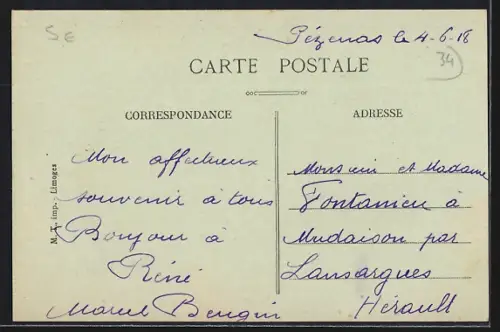 5 €
Pézenas le 4-6-18
34
CARTE POSTALE
CORRESPONDANCE
ADRESSE
Mon affectueux
souvenir à tous
Bonjour à
Réné
Marcel Bengin
Monsieur et Madame
Fontanieu à
Mudaison par
Lansargues
Hérault
M. T. imp. - Limoges